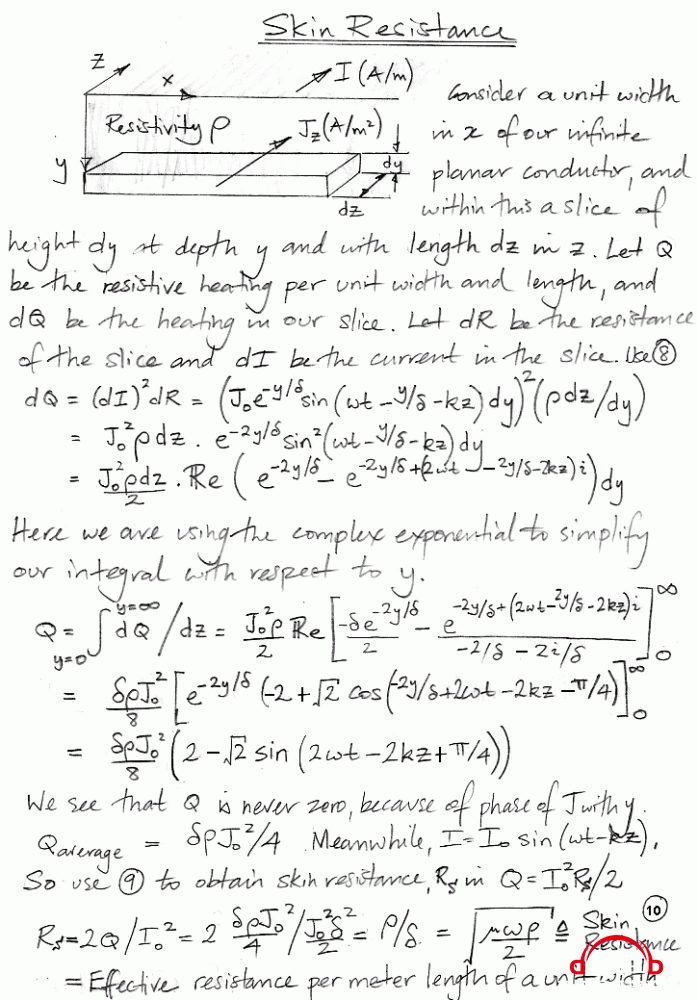 Skin Resistance
z
x
I (A/m)
Consider a unit width
Resistivity ρ
J_z (A/m²)
in x of our infinite
y
dy
planar conductor, and
dz
within this a slice of
height dy at depth y and with length dz in z. Let Q
be the resistive heating per unit width and length, and
dQ be the heating in our slice. Let dR be the resistance
of the slice and dI be the current in the slice. Use ⑧
dQ = (dI)² dR = (J₀e^{-y/δ} sin(ωt - y/δ - kz) dy)² (ρdz/dy)
= J₀²ρdz . e^{-2y/δ} sin²(ωt - y/δ - kz) dy
= J₀²ρdz/2 . Re (e^{-2y/δ} - e^{-2y/δ+(2ωt - 2y/δ - 2kz)i}) dy
Here we are using the complex exponential to simplify
our integral with respect to y.
Q = ∫_{y=0}^{y=∞} dQ/dz = J₀²ρ/2 Re [-δe^{-2y/δ}/2 - e^{-2y/δ+(2ωt-2y/δ-2kz)i}/(-2/δ - 2i/δ)]_0^∞
= δρJ₀²/8 [e^{-2y/δ} (-2+√2 cos(-2y/δ+2ωt-2kz-π/4)]_0^∞
= δρJ₀²/8 (2-√2 sin (2ωt-2kz+π/4))
We see that Q is never zero, because of phase of J with y.
Q_average = δρJ₀²/4 Meanwhile, I=I₀ sin(ωt-kz),
So use ⑨ to obtain skin resistance, R_s in Q=I₀²R_s/2
R_s=2Q/I₀²= 2 δρJ₀²/4 / J₀²δ²/2 = ρ/δ = √(μωρ/2) ≜ Skin Resistance ⑩
= Effective resistance per meter length of a unit width